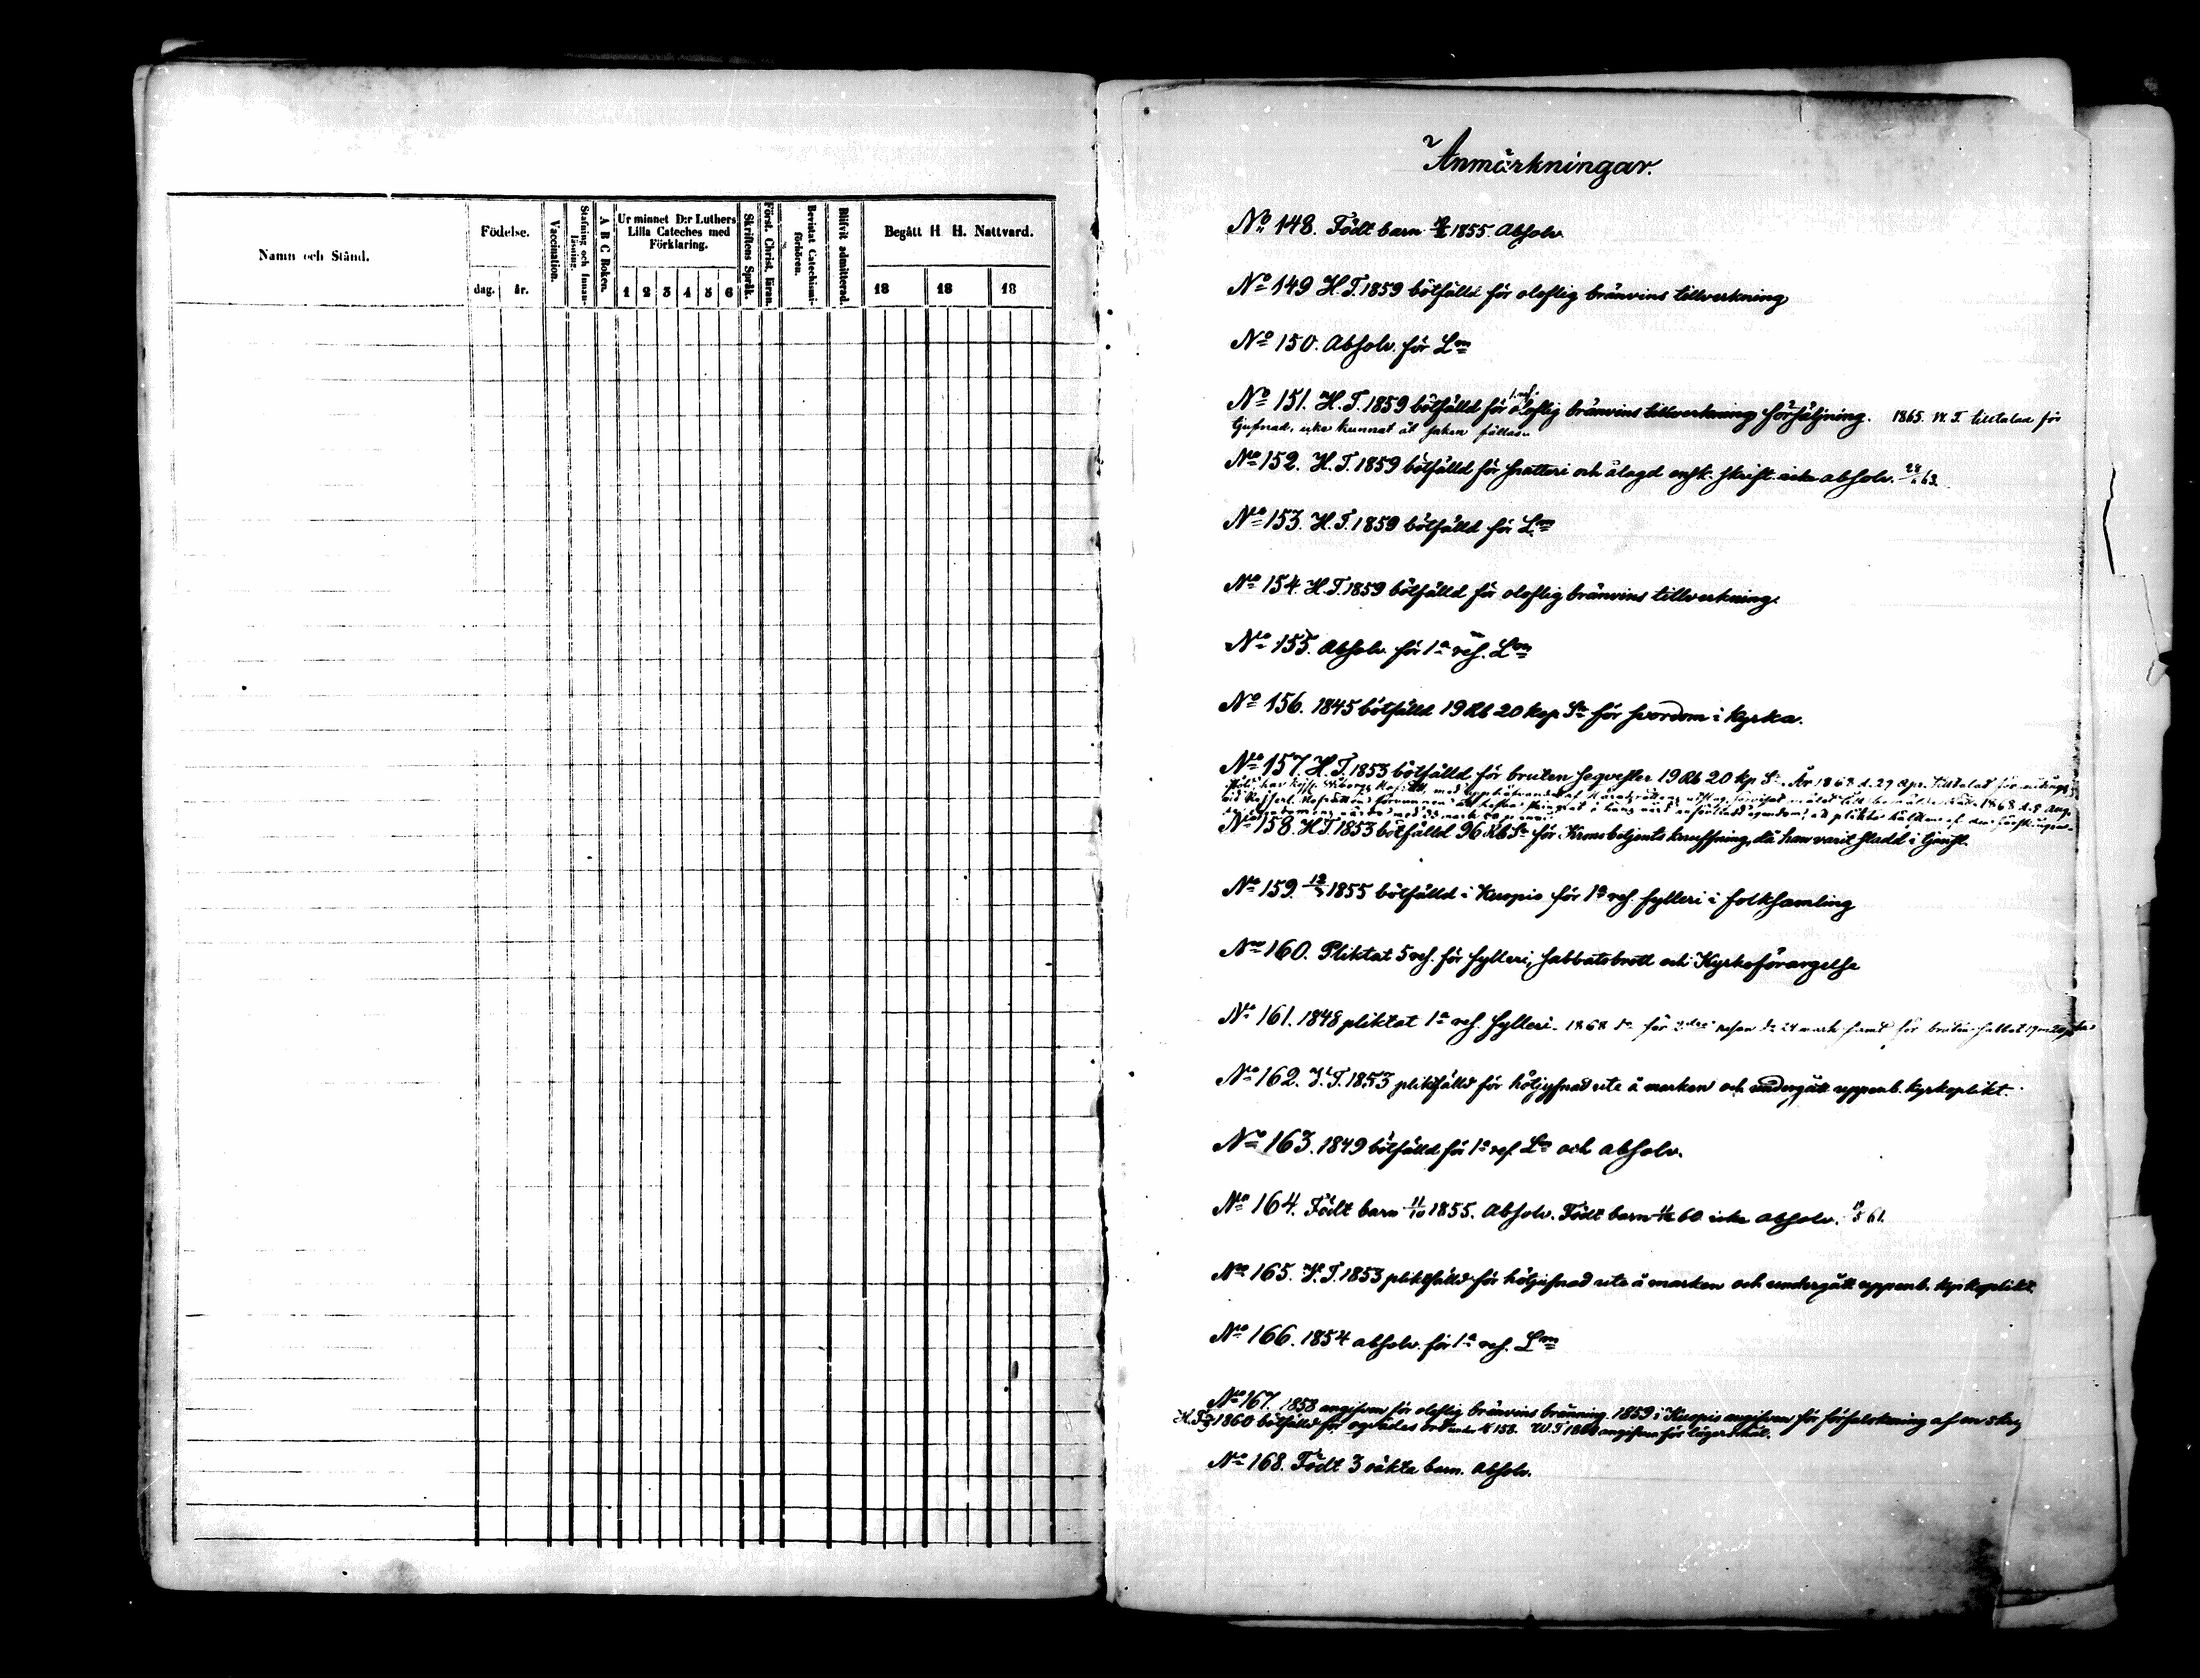 Namn och Stånd.
Födelse.
dag.
år.
Vaccination.
Stafning och Innanläsning.
A B C Boken.
Ur minnet D:r Luthers
Lilla Cateches med
Förklaring.
1 2 3 4 5 6
Skriftens Språk.
Först. Christ. läran.
Bevistat Catechismiförhören.
Blifvit admitterad.
Begått H H. Nattvard.
18 18 18
Anmärkningar.
No 148. Födt barn 1855. Absolv.
No 149 H.T. 1859 bötfälld för oloflig bränvins tillverkning
No 150. Absolv. för Lm
No 151. H.T. 1859 bötfälld för oloflig bränvins tillverkning försäljning. 1865. V. T. tilltalad för
tjufnad, icke kunnat åt saken fällas.
No 152. H.T. 1859 bötfälld för snatteri och ålagd ensk. skrift. icke absolv. 63.
No 153. H.T. 1859 bötfälld för Lm
No 154. H.T. 1859 bötfälld för oloflig bränvins tillverkning.
No 155. Absolv. för 1a res. Lm
No 156. 1845 bötfälld 19 Rb 20 kop Sr för svordom i kyrka.
No 157. H.T. 1853 bötfälld för bruten seqvester 19 Rb 20 kp Sr. År 1868 d. 29 Apr. tilltalad för
No 158. H T 1853 bötfälld 96 Rb Sr för Kronobetjents knuffning, då han varit stadd i tjenst.
No 159. 1855 bötfälld i Kuopio för 1a res. fylleri i folksamling
No 160. Pliktat 5 res. för fylleri, sabbatsbrott och Kyrkoförargelse
No 161. 1848 pliktat 1a res. fylleri. 1868 för resan 24 mark samt för bruten sabbat
No 162. V.T. 1853 pliktfälld för höltjufnad ute å marken och undergått uppenb. kyrkoplikt.
No 163. 1849 bötfälld för 1a res. Lm och absolv.
No 164. Födt barn 11/10 1855. Absolv. Födt barn 60 icke absolv. 61.
No 165. V.T. 1853 pliktfälld för höltjufnad ute å marken och undergått uppenb. kyrkoplikt.
No 166. 1854 absolv. för 1a res. Lm
No 167. 1858 angifven för oloflig bränvins bränning. 1859 i Kuopio angifven för förfalskning af en sedel
H.T. 1860 bötfälld för oqvädes ord under § 158. W.T. angifven för lägersmål.
No 168. Födt 3 oäkta barn. Absolv.